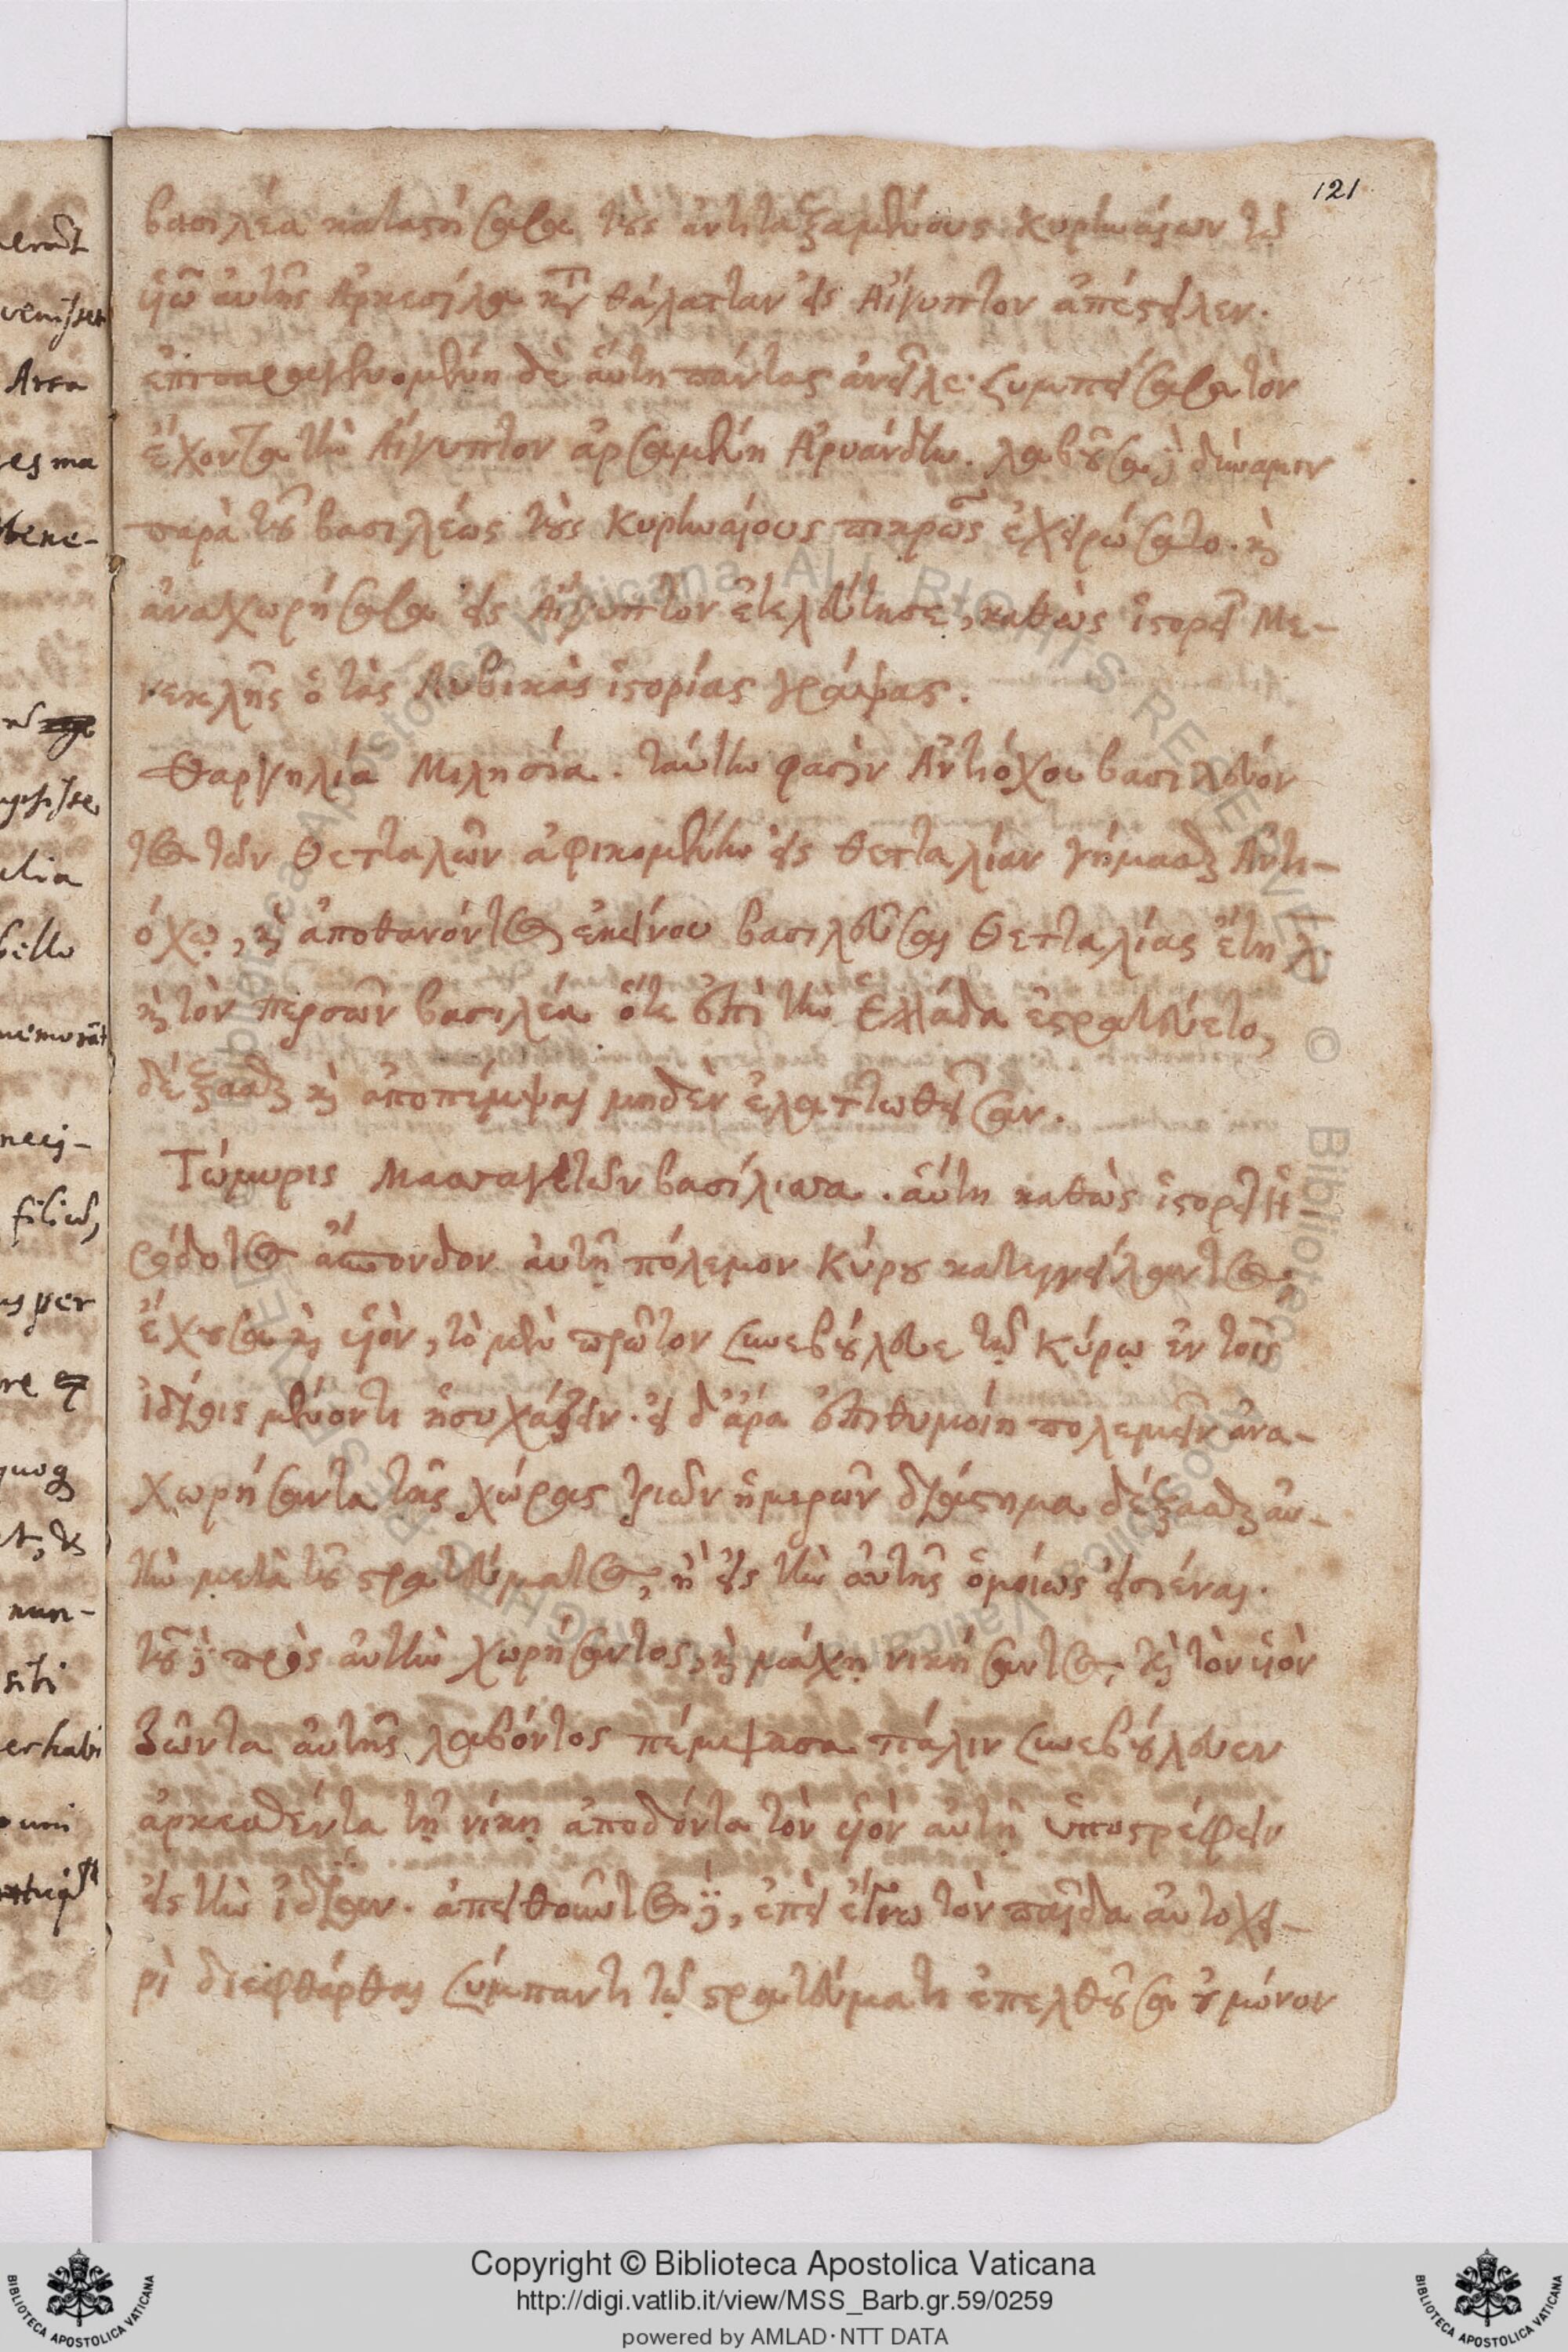 121
βασιλέα καταστήσασα τοὺς ἀντιταξαμένους Κυρηναίων τῷ
υἱῷ αὐτῆς Ἀρκεσίλα κατὰ θάλατταν εἰς Αἴγυπτον ἀπέστειλεν.
ἐπιπαραγενομένη δὲ αὕτη πάντας ἀνεῖλε· συμπείσασα τὸν
ἔχοντα τὴν Αἴγυπτον ἀρσαμένη Ἀρυάνδην. λαβοῦσα δὲ δύναμιν
παρὰ τοῦ βασιλέως τοὺς Κυρηναίους πικρῶς ἐχειρώσατο. καὶ
ἀναχωρήσασα εἰς Αἴγυπτον ἐτελεύτησε, καθὼς ἱστορεῖ Με-
νεκλῆς ὁ τὰς Λυβικὰς ἱστορίας γράψας.
Θαργηλία Μιλησία. ταύτην φασὶν Ἀντιόχου βασιλεύον
τος τῶν Θετταλῶν ἀφικομένην εἰς Θετταλίαν γήμασθαι Ἀντι-
όχῳ, καὶ ἀποθανόντος ἐκείνου βασιλεῦσαι Θετταλίας ἔτη λ.
καὶ τὸν Περσῶν βασιλέα ὅτε ἐπὶ τὴν Ἑλλάδα ἐστρατεύετο,
δέξασθαι καὶ ἀποπέμψαι μηδὲν ἐλαττωθεῖσαν.
Τώμυρις Μασσαγετῶν βασίλισσα. αὕτη καθὼς ἱστορεῖ Ἡ-
ρόδοτος ἄσπονδον αὐτῇ πόλεμον Κύρου καταγγείλαντος,
ἔχουσα καὶ υἱὸν, τὸ μὲν πρῶτον συνεβούλευε τῷ Κύρῳ ἐν τοῖς
ἰδίοις μένοντι ἡσυχάζειν. εἰ δ' ἄρα ἐπιθυμοίη πολεμεῖν ἀνα-
χωρήσαντα τῆς χώρας τριῶν ἡμερῶν διάστημα δέξασθαι αὐ-
τὴν μετὰ τοῦ στρατεύματος, ἢ εἰς τὴν αὐτῆς ὁμοίως εἰσιέναι.
τοῦ δὲ πρὸς αὐτὴν χωρήσαντος, καὶ μάχῃ νικήσαντος, καὶ τὸν υἱὸν
ζῶντα αὐτῆς λαβόντος πέμψασα πάλιν συνεβούλευεν
ἀρκεσθέντα τῇ νίκῃ ἀποδόντα τὸν υἱὸν αὐτῇ ὑποστρέφειν
εἰς τὴν ἰδίαν. ἀπειθοῦντος δὲ, ἐπεὶ ἔγνω τὸν παῖδα αὐτοχει-
ρὶ διεφθάρθαι σύμπαντι τῷ στρατεύματι ἐπελθοῦσα οὐ μόνον
Copyright © Biblioteca Apostolica Vaticana
http://digi.vatlib.it/view/MSS_Barb.gr.59/0259
powered by AMLAD·NTT DATA